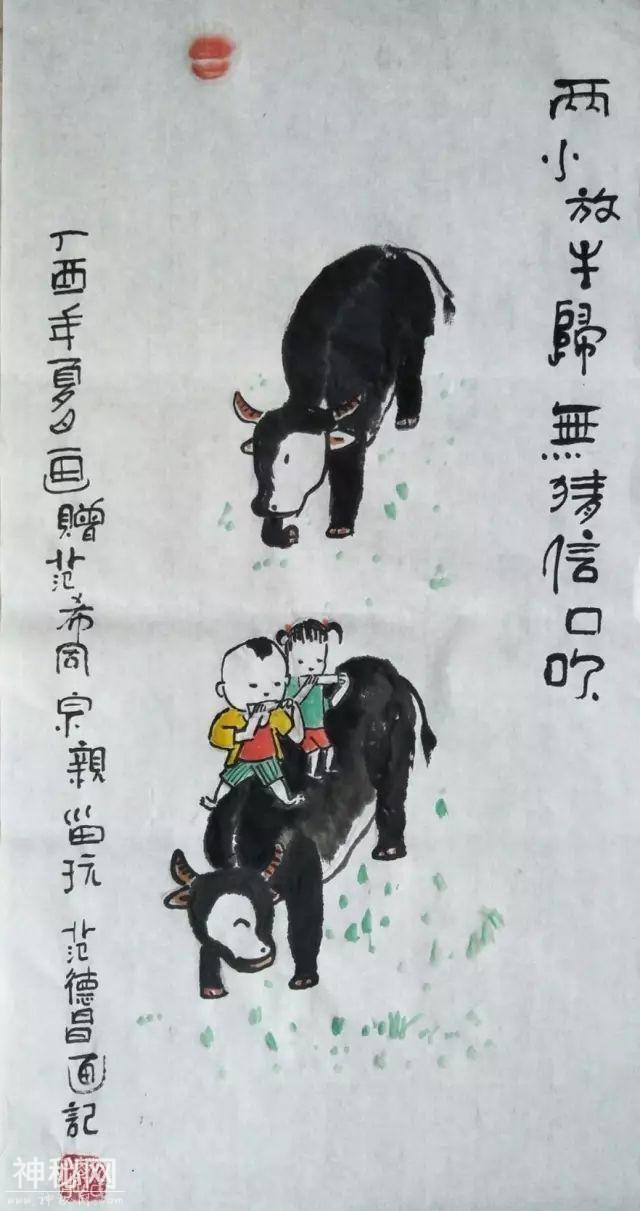 两小放牛歸 無猜信口吹
丁酉年夏日画贈范希同宗親留玩 范德昌画記
神秘网